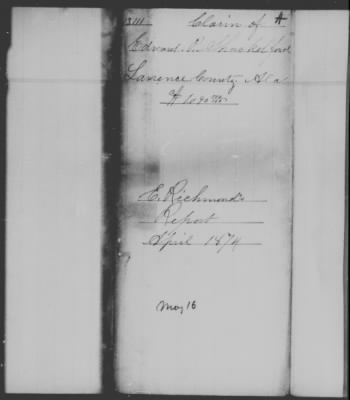 3111 Claim of A
Edward R. Shackelford
Lawrence County Ala
E. Richmond's
Report
April 1874
May 16